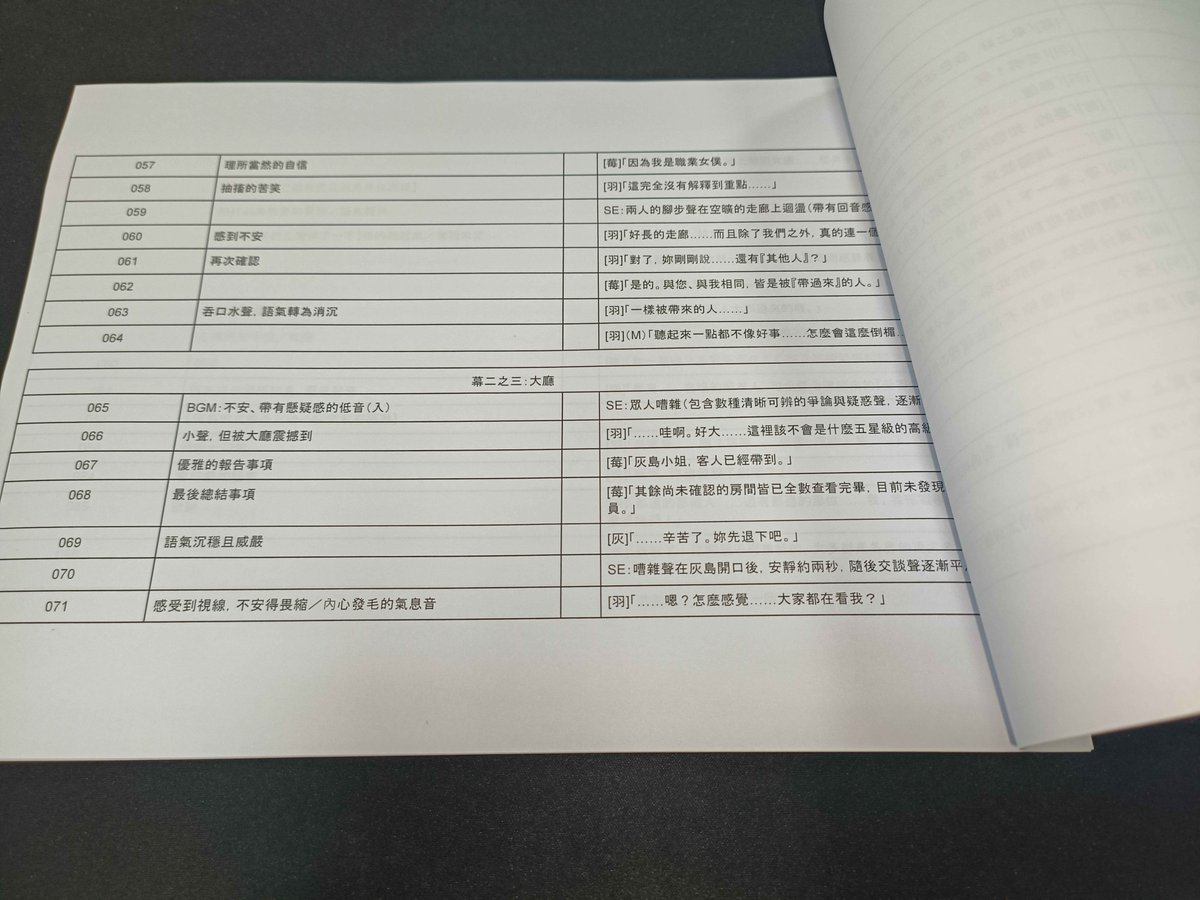 057 理所當然的自信 [莓]「因為我是職業女僕。」
058 抽搐的苦笑 [羽]「這完全沒有解釋到重點……」
059 SE：兩人的腳步聲在空曠的走廊上迴盪（帶有回音感
060 感到不安 [羽]「好長的走廊……而且除了我們之外，真的連一個
061 再次確認 [羽]「對了，妳剛剛說……還有『其他人』？」
062 [莓]「是的。與您、與我相同，皆是被『帶過來』的人。」
063 吞口水聲，語氣轉為消沉 [羽]「一樣被帶來的人……」
064 [羽]（M）「聽起來一點都不像好事……怎麼會這麼倒楣…
幕二之三：大廳
065 BGM：不安、帶有懸疑感的低音（入） SE：眾人嘈雜（包含數種清晰可辨的爭論與疑惑聲，逐漸
066 小聲，但被大廳震撼到 [羽]「……哇啊。好大……這裡該不會是什麼五星級的高級
067 優雅的報告事項 [莓]「灰島小姐，客人已經帶到。」
068 最後總結事項 [莓]「其餘尚未確認的房間皆已全數查看完畢，目前未發現
員。」
069 語氣沉穩且威嚴 [灰]「……辛苦了。妳先退下吧。」
070 SE：嘈雜聲在灰島開口後，安靜約兩秒，隨後交談聲逐漸平
071 感受到視線，不安得畏縮／內心發毛的氣息音 [羽]「……嗯？怎麼感覺……大家都在看我？」